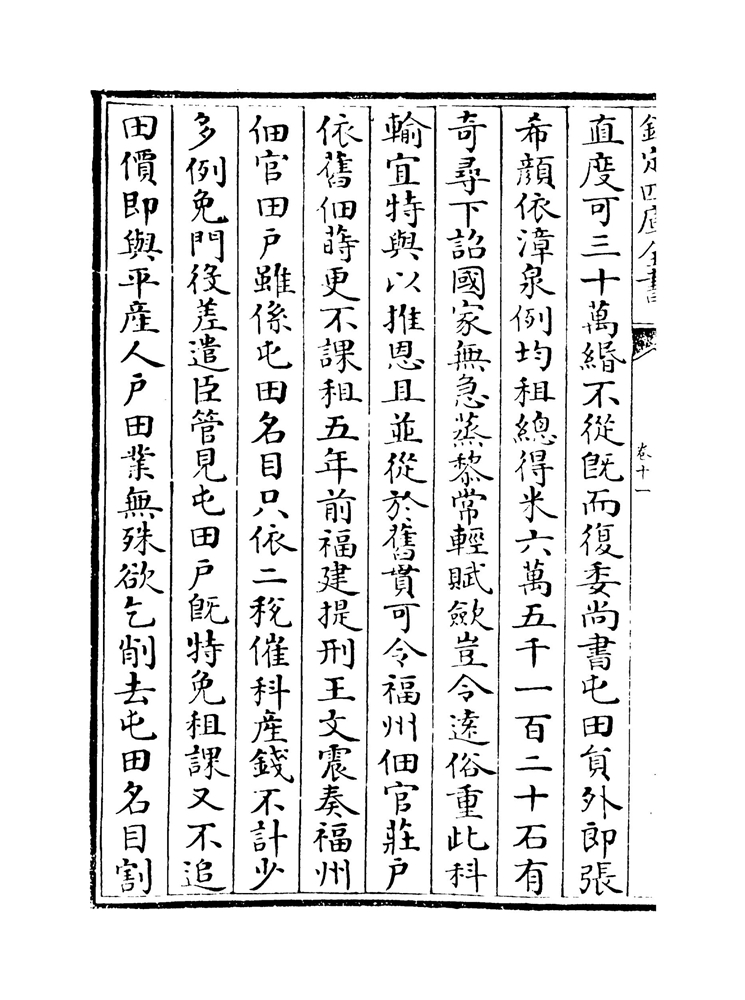 欽定四庫全書
卷十一
直度可三十萬緡不從旣而復委尚書屯田員外郎張
希顔依漳泉例均租總得米六萬五千一百二十石有
奇尋下詔國家無急蒸黎常輕賦歛豈令逺俗重此科
輸宜特與以推恩且並從於舊貫可令福州佃官莊戶
依舊佃蒔更不課租五年前福建提刑王文震奏福州
佃官田戶雖係屯田名目只依二税催科産錢不計少
多例免門役差遣臣管見屯田戶旣特免租課又不追
田價即與平産人戶田業無殊欲乞削去屯田名目割